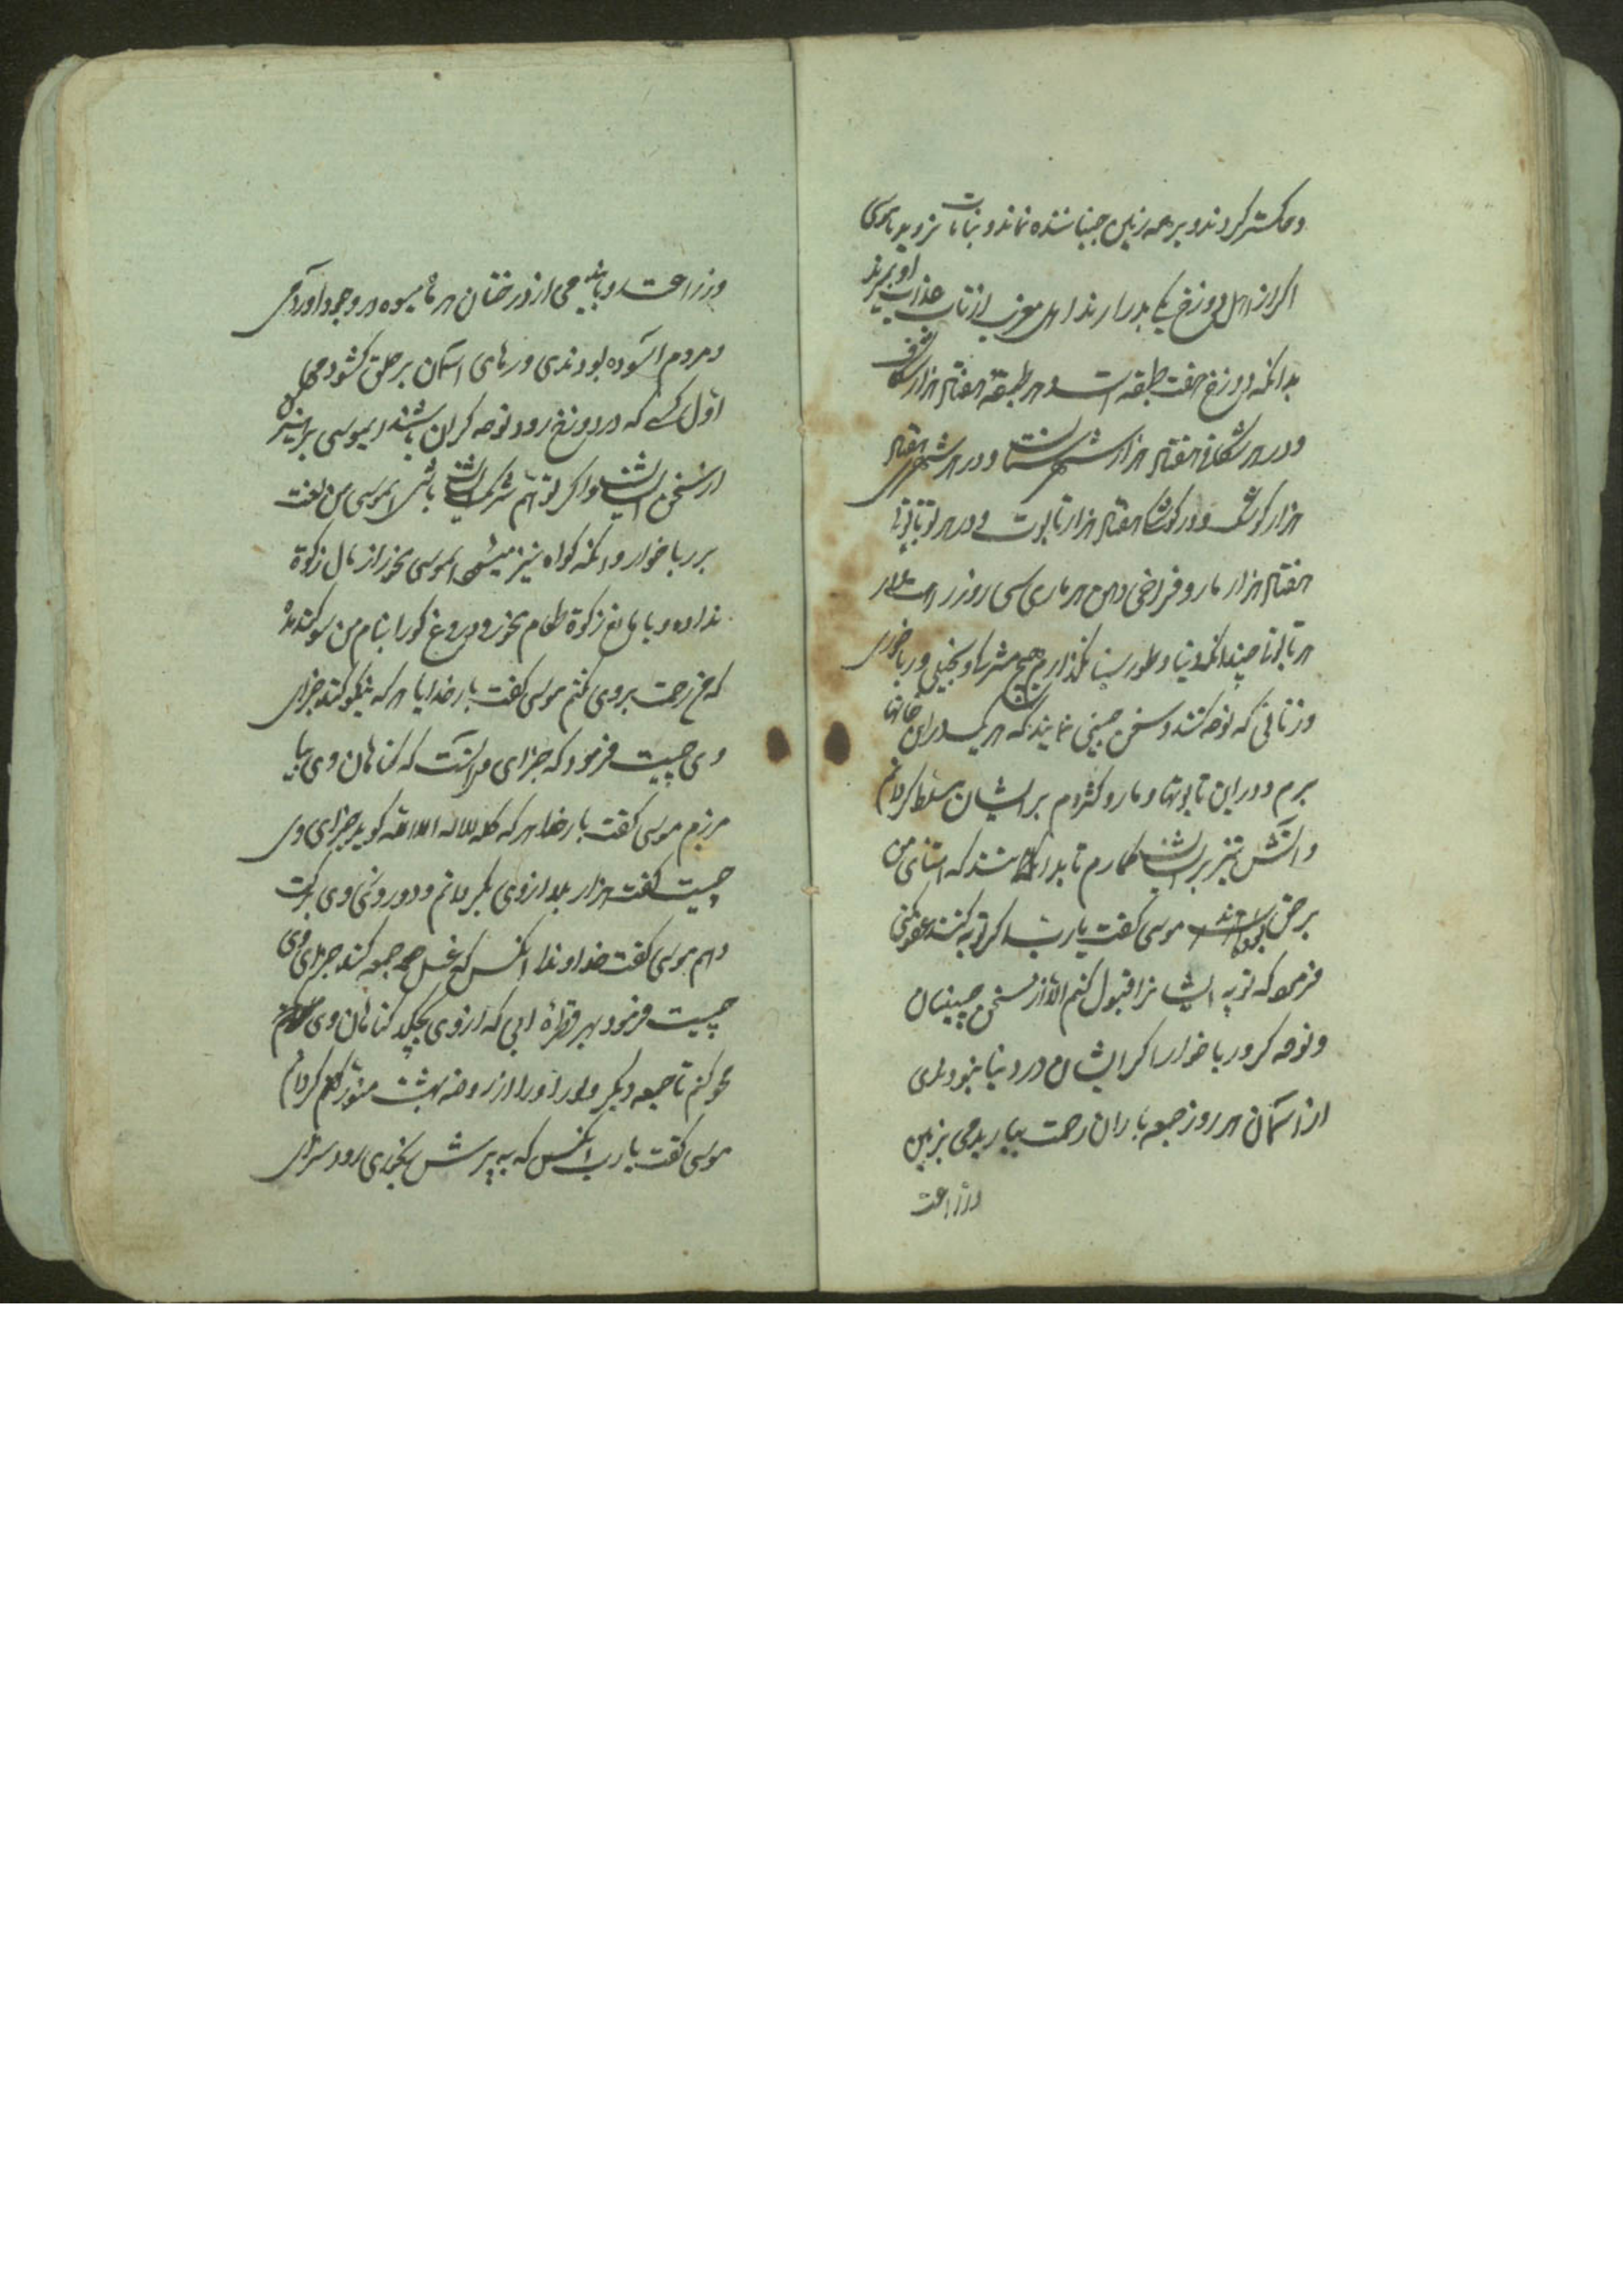 و خاکستر کردند و بر همه زمین جنبانبده نماند و نباتات نروید یاموسی
اکر از اهل دوزخ یکی بدر ارند اهل مغرب از تاب عذاب او بمیرند
بدانکه دوزخ هفت طبقه است و هر طبقه هفتاد هزار شکاف
و در هر شکافی هفتاد هزار شهرستانست و در هر شهری هفتاد
هزار کوشک و در کوشک هفتاد هزار تابوت و در هر تابوتی
هفتاد هزار مار و فراخی دهن هر ماری سی روزه راهست
هر تابوتی چندانکه دنیا و طور سینا نکذارم هیچ مشرک و بخیل و رباخوری
و زنانی که نوحه کنند و سخن چینی نمایند که هر یک در ان خانها
برم و در این تابوتها و مار و کثردم بر ایشان مسلط کردانم
و اتش تیز بر ایشان کمارم تا بدانند که استای من
بر حق موسی کفت یا رب اکر توبه کنند عفو کنی
فرمود که توبه ایشانرا قبول کنم الا از سخن چینان
و نوحه کر و رباخوار اکر ایشان در دنیا نبودندی
از اسمان هر روز جمعه باران رحمت بباریدمی بزمین
وزراعت
وزراعت و از درختان هر ماه میوه در وجود آوردمی
و مردم اسوده بودندی و درهای اسمان بر خلق کشودمی
اول کسی که در دوزخ رود نوحه کران باشند یموسی بپرهیز
از سخن ایشان و اکر تو هم شریک ایشان باشی یموسی من لعنت
بر رباخوار و انکه کواه نیز میشود یموسی مخور از مال زکوة
نداده و با مانع زکوة طعام مخور و دروغ کو را بنام من سوکند مده
که من رحمت بروی کنم موسی کفت بار خدایا هر که نیکو کند جزای
وی چیست فرمود که جزای او انست که کناهان وی بیا
مرزم موسی کفت بار خدایا هر که کلمه لااله الاالله کوید جزای وی
چیست کفت هزار بلا از وی بکردانم و دوروشی وی برکت
دهم موسی کفت خداوندا انکس که غسل جمعه کند جزای وی
چیست فرمود بهر قطره ابی که از وی بچکد کناهان وی
محو کنم تا جمعه دیکر و او را از روضه بهشت منور کردانم
موسی کفت یا رب انکس که به پرسش بخیری رود سزای